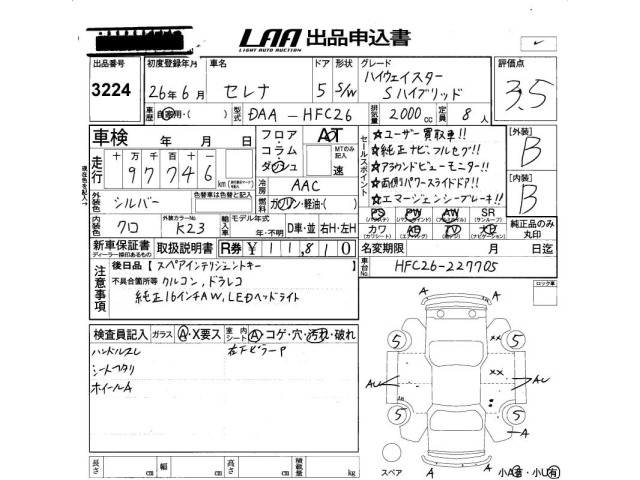 LAA 出品申込書
LIGHT AUTO AUCTION
出品番号 初度登録年月 車名 ドア 形状 グレード 評価点
3224 26年6月 セレナ 5 S/W ハイウェイスター
Sハイブリッド 3.5
車歴 自家用・( ) 型式 DAA-HFC26 排気量 2000cc 定員 8人
車検 年 月 日 フロア AT
コラム MTのみ記入
ダッシュ 速
走行 十万千百十一
97746 km
冷房 AAC
セールスポイント
☆ユーザー買取車!!
☆純正ナビフルセグ!!
☆アラウンドビューモニター!!
☆両側パワースライドドア!!
☆エマージェンシーブレーキ!!
[外装] B
[内装] B
外装色 シルバー 色替車は色替と記入 燃料 ガソリン・軽油・( )
内装色 クロ 外装カラーNo. K23 輸入車 モデル年式 年・不明 D車・並 右H・左H
PS PW AW SR
カワ AB TV ナビ
純正品のみ丸印
新車保証書 取扱説明書 R券 ¥11,810
ディーラー捺印あるもの
名変期限 月 日迄
車台No. HFC26-227705
注意事項
後日品【スペアインテリジェントキー
不具合箇所等 クルコン、ドラレコ
純正16インチAW、LEDヘッドライト
ロック車
検査員記入 ガラス A・X要ス 室内シート A コゲ・穴・汚れ・破れ
ハンドルスレ 右FピラーP
シートヘタリ
ホイールA
A A
5 5
xx
xx
AU AU
5 5
A
スペア A 小A有・小U有
長さ cm 幅 cm 高さ cm 積載量 kg